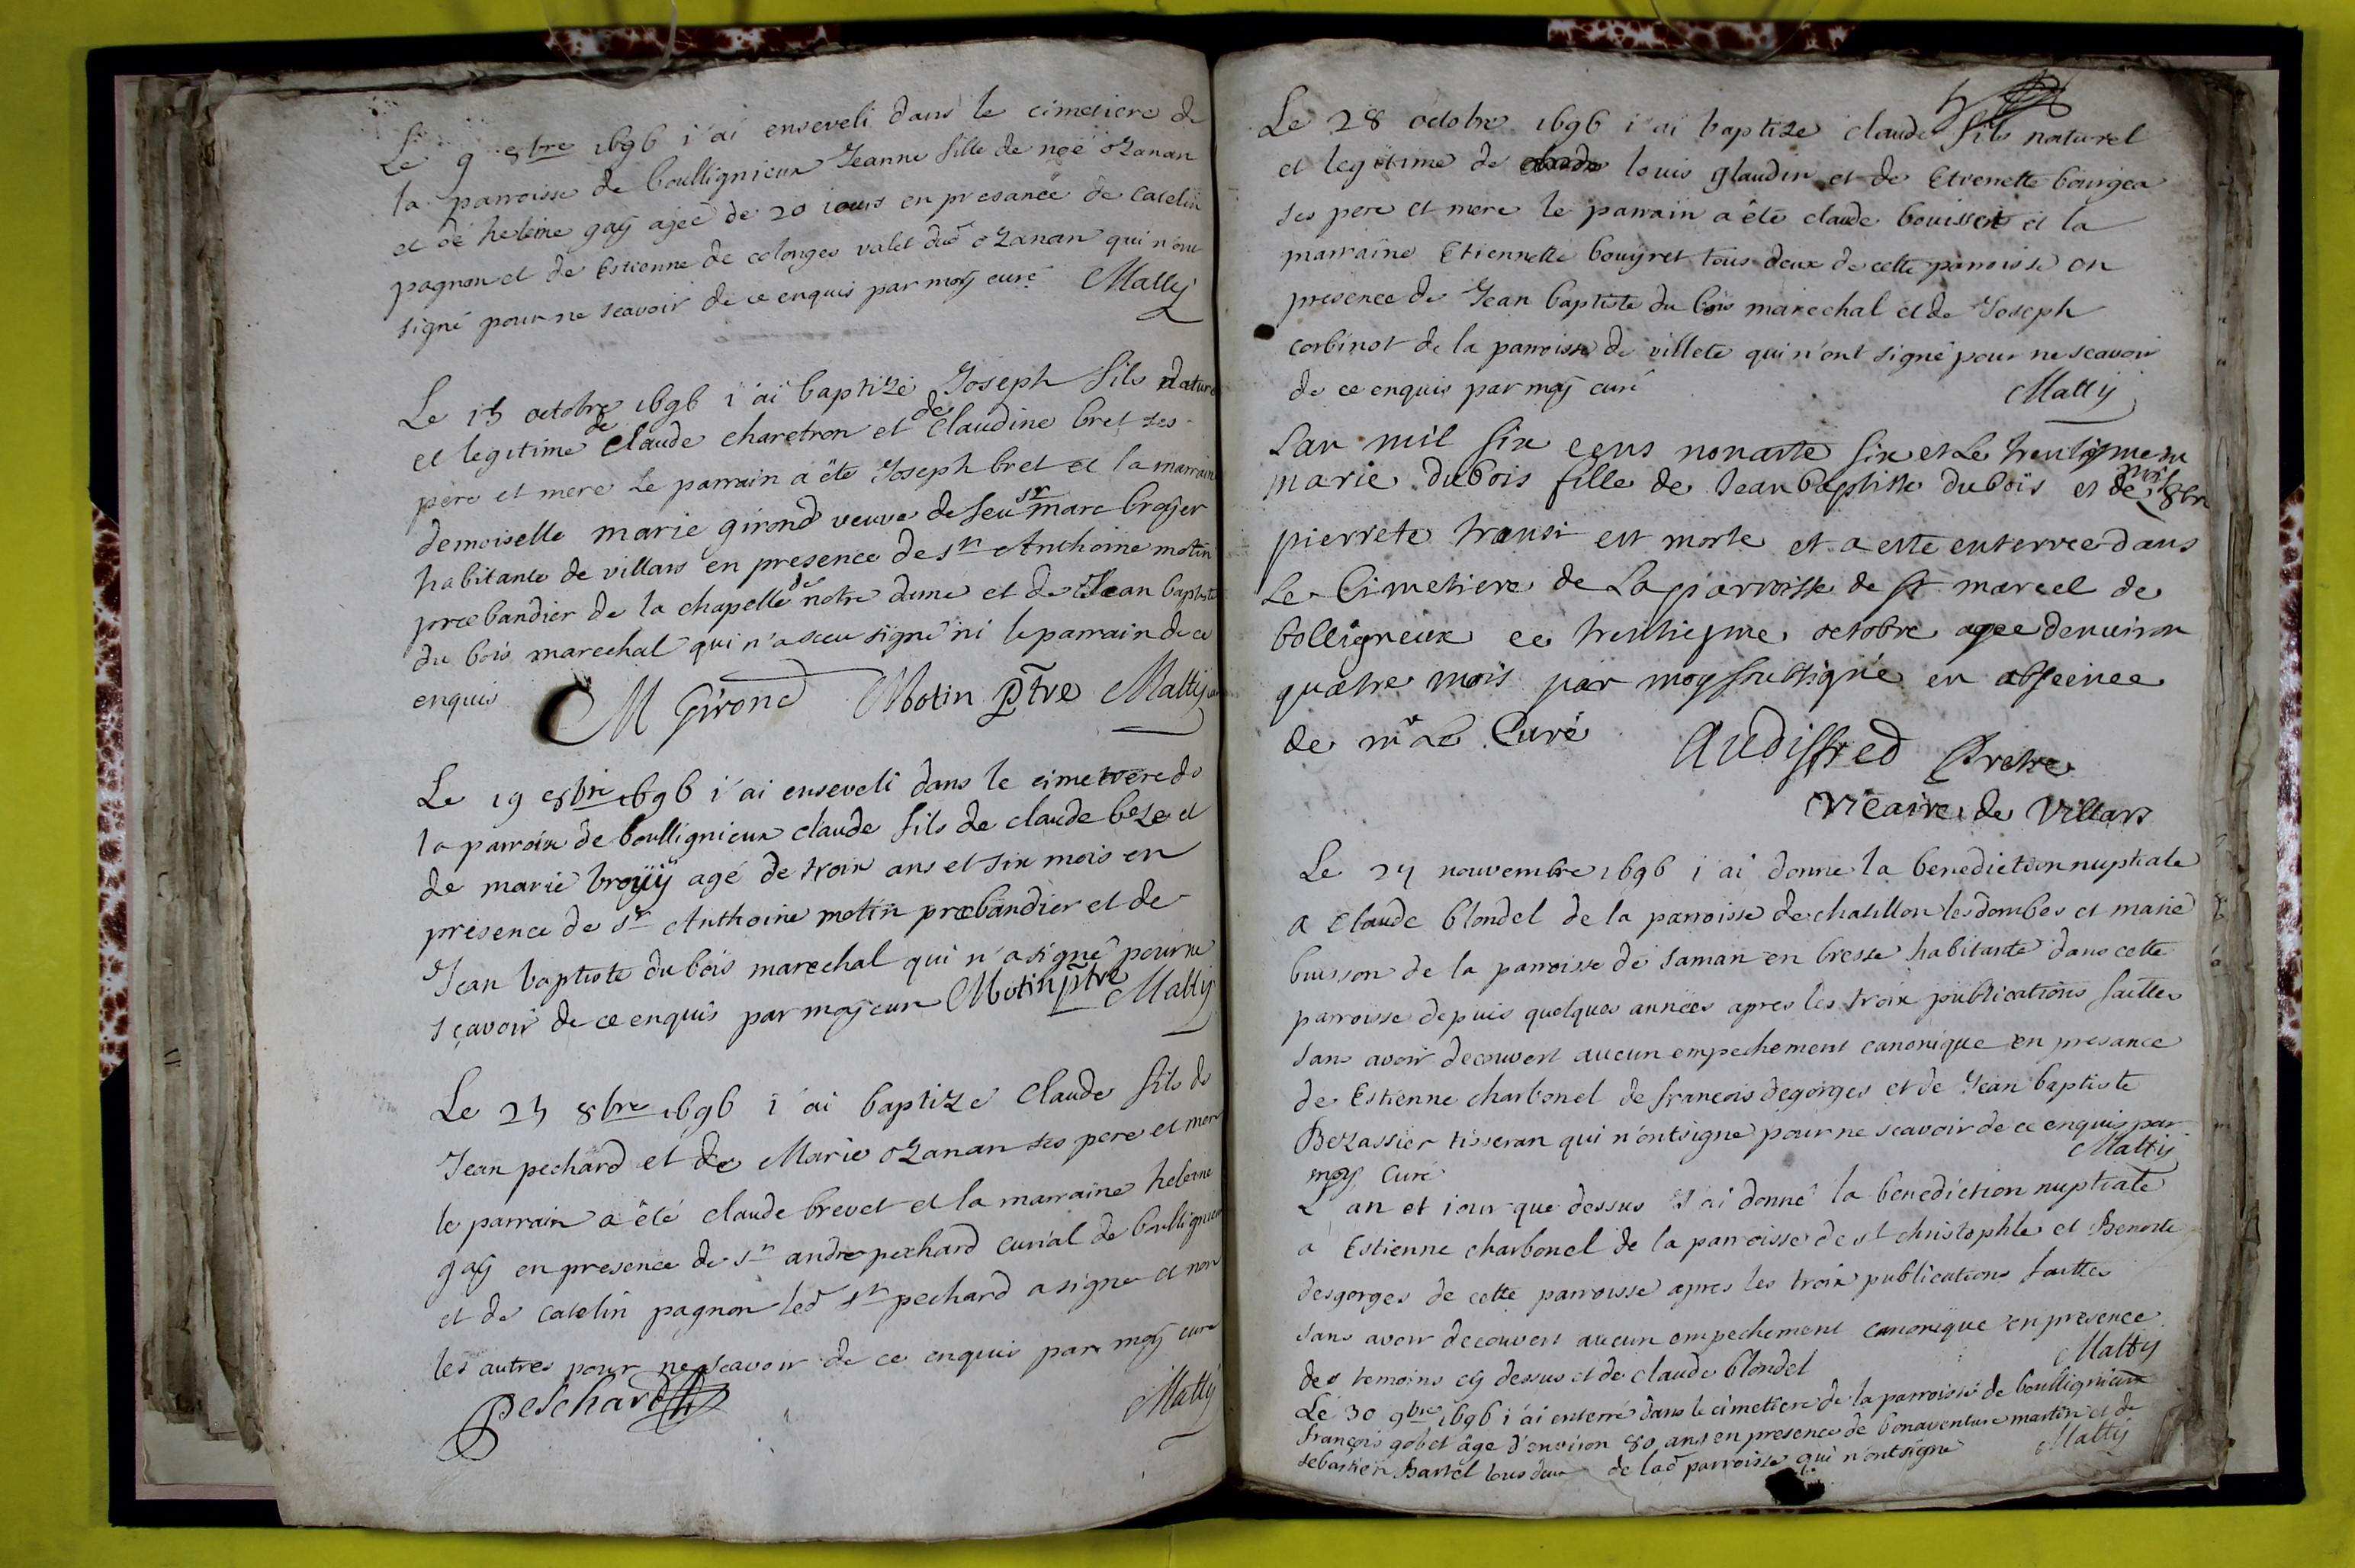 Le 9 8bre 1696 i'ai enseveli dans le cimetiere de
la parroisse de boullignieux Jeanne fille de noë oZanan
et de heleine gaÿ agée de 20 iours en presance de catelin
pagnon et de Estienne de colonges valet dud oZanan qui n'ont
signé pour ne scavoir de ce enquis par moÿ curé Mattÿ
Le 15 octobre 1696 i'ai baptizé Joseph fils nature
et legitime de Claude charetron et de Claudine bret ses
pere et mere Le parrain a été Joseph bret et la marraine
demoiselle marie girond veuve de feu sr marc broÿer
habitante de villars en presence de sr Anthoine motin
præbandier de la chapelle de notre dame et de Jean baptiste
du bois marechal qui n'a sceu signé ni le parrain de ce
enquis M Girond Motin ptre Mattÿ
Le 19 8bre 1696 i'ai enseveli dans le cimetiere de
la parroix de boullignieux claude fils de claude beze et
de marie broÿÿ agé de troix ans et six mois en
presence de sr Anthoine motin præbandier et de
Jean baptiste du bois marechal qui n'a signé pour ne
sçavoir de ce enquis par moÿ cur Motin ptre Mattÿ
Le 25 8bre 1696 i'ai baptizé Claude fils de
Jean pechard et de Marie oZanan ses pere et mere
le parrain a été claude brevet et la marraine heleine
gaÿ en presence de sr andre pechard curial de boullignieux
et de catelin pagnon led sr pechard a signé et non
les autres pour ne scavoir de ce enquis par moÿ curé
Peschard Mattÿ
Le 28 octobre 1696 i'ai baptize claude fils naturel
et legitime de louis glaudin et de Etienette bourgea
ses pere et mere le parrain a été claude bouisset et la
marraine Etiennette bouyret tous deux de cette parroisse en
presence de Jean baptiste du bois marechal et de Joseph
corbinot de la parroisse de villete qui n'ont signé pour ne scavoir
de ce enquis par moÿ curé Mattÿ
Lan mil six cens nonante six et Le trentiesme du
mois 8bre
marie dubois fille de Jean baptiste dubois et de
pierrete transi est morte et a esté enterree dans
Le Cimetiere de La parroisse de st marcel de
bolligneux ce trentiesme octobre agee denuiron
quatre mois par moy soubsigné en absence
de mr Le Curé Audiffred Pretre
vicaire de Villars
Le 24 nouvembre 1696 i'ai donné la benediction nuptiale
a Claude blondel de la parroisse de chatillon les dombes et marie
buisson de la parroisse de saman en bresse habitante dans cette
parroisse depuis quelques années apres les troix publications faittes
sans avoir decouvert aucun empechement canonique en presance
de Estienne charbonel de francois degorges et de Jean baptiste
Bezassier tisseran qui n'ont signé pour ne scavoir de ce enquis par
moÿ Curé Mattÿ
L'an et iour que dessus J'ai donné la benediction nuptiale
a Estienne charbonel de la parroisse de st christophle et Benoite
desgorges de cette parroisse apres les troix publications faittes
sans avoir decouvert aucun empechement canonique en presence
des temoins cÿ dessus et de claude blondel Mattÿ
Le 30 9bre 1696 i'ai enterré dans le cimetiere de la parroisse de boullignieux
François gobet âge d'environ 80 ans en presence de bonaventure martin et de
sebastien Bartel tous deux de lad parroisse qui n'ont signé Mattÿ